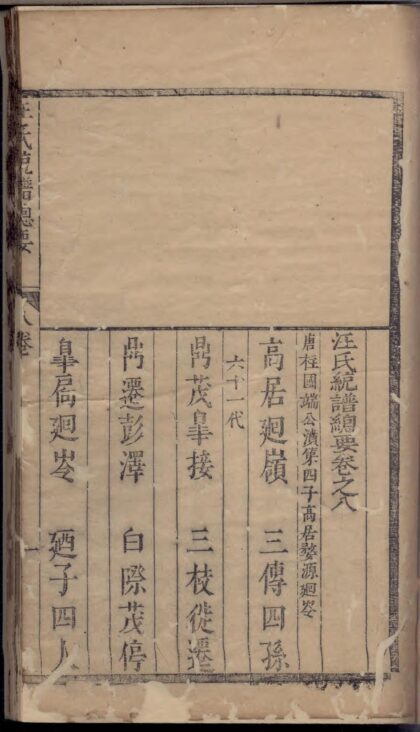 汪氏統譜總要卷之八
唐柱國端公濆集四子高居婺源廻岺
高居廻嶺　三傳四孫
六十一代
鼎茂皐接　三枝徙遷
鼎遷彭澤　白際茂停
皐喬廻岺　廼子四人
汪氏統譜總要　八卷　一